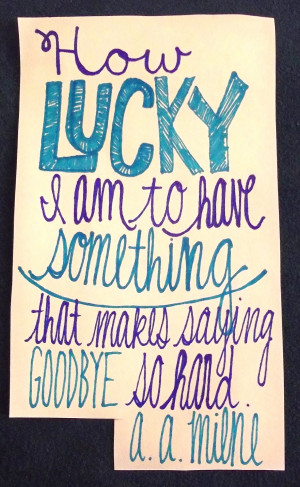 How
LUCKY
I am to have
something
that makes saying
GOODBYE so hard.
a. a. milne